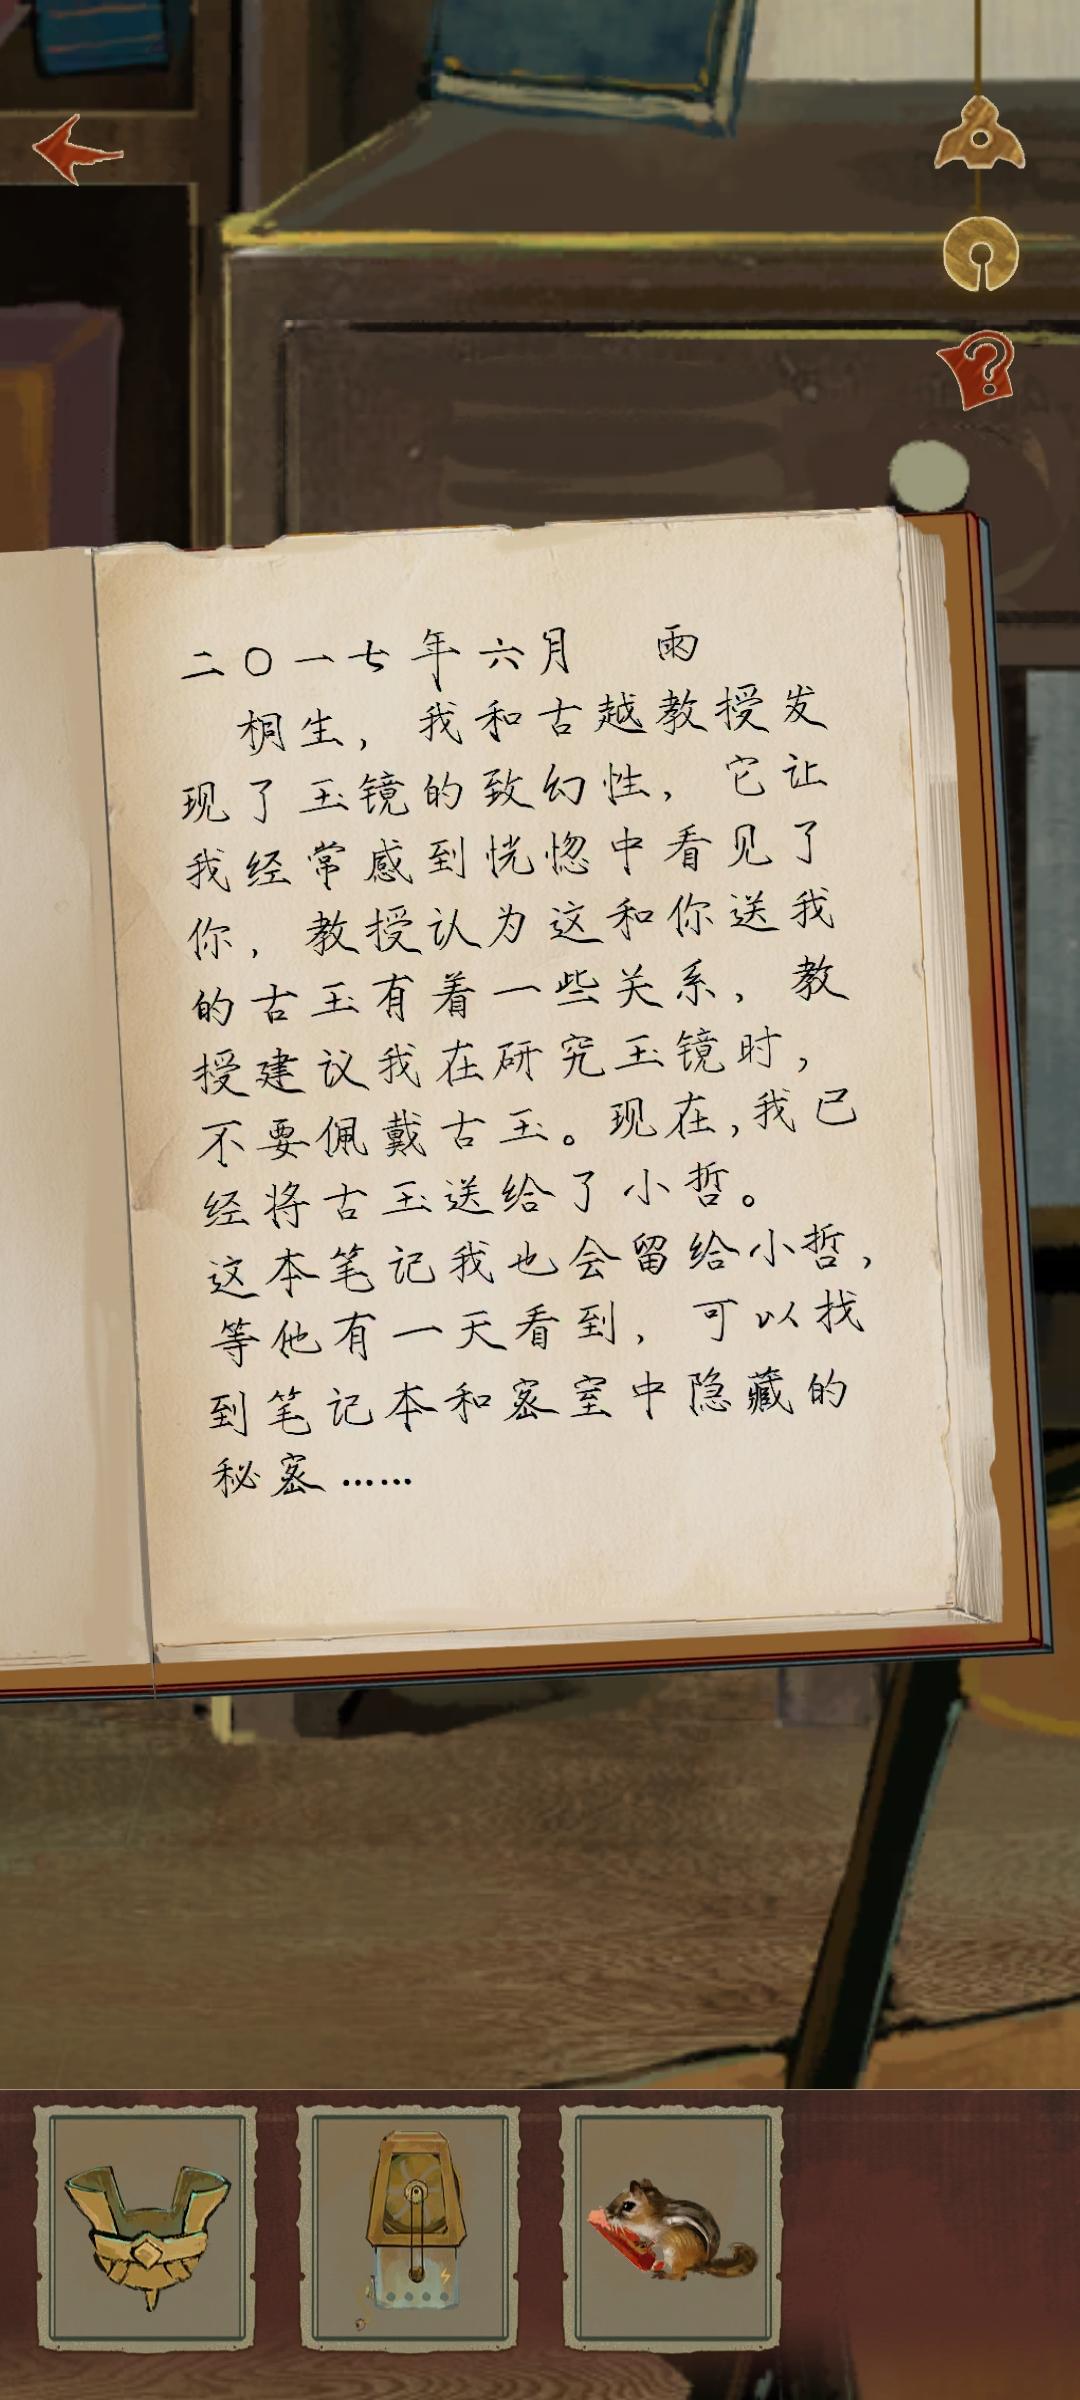 二〇一七年六月 雨
桐生，我和古越教授发
现了玉镜的致幻性，它让
我经常感到恍惚中看见了
你，教授认为这和你送我
的古玉有着一些关系，教
授建议我在研究玉镜时，
不要佩戴古玉。现在，我已
经将古玉送给了小哲。
这本笔记我也会留给小哲，
等他有一天看到，可以找
到笔记本和密室中隐藏的
秘密……